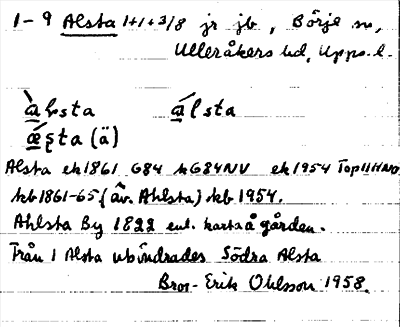 1-9 Alsta 1+1+3/8 jr jb, Börje sn,
Ulleråkers hd, Upps. l.
àlsta álsta
ǽsta (ä)
Alsta ek 1861 G84 hG84NV ek 1954 Top 11H NV
kb 1861-65 (äv. Ahlsta) kb 1954.
Ahlsta By 1822 enl. karta å gården.
Från 1 Alsta utbindrades Södra Alsta
Bror-Erik Ohlsson 1958.